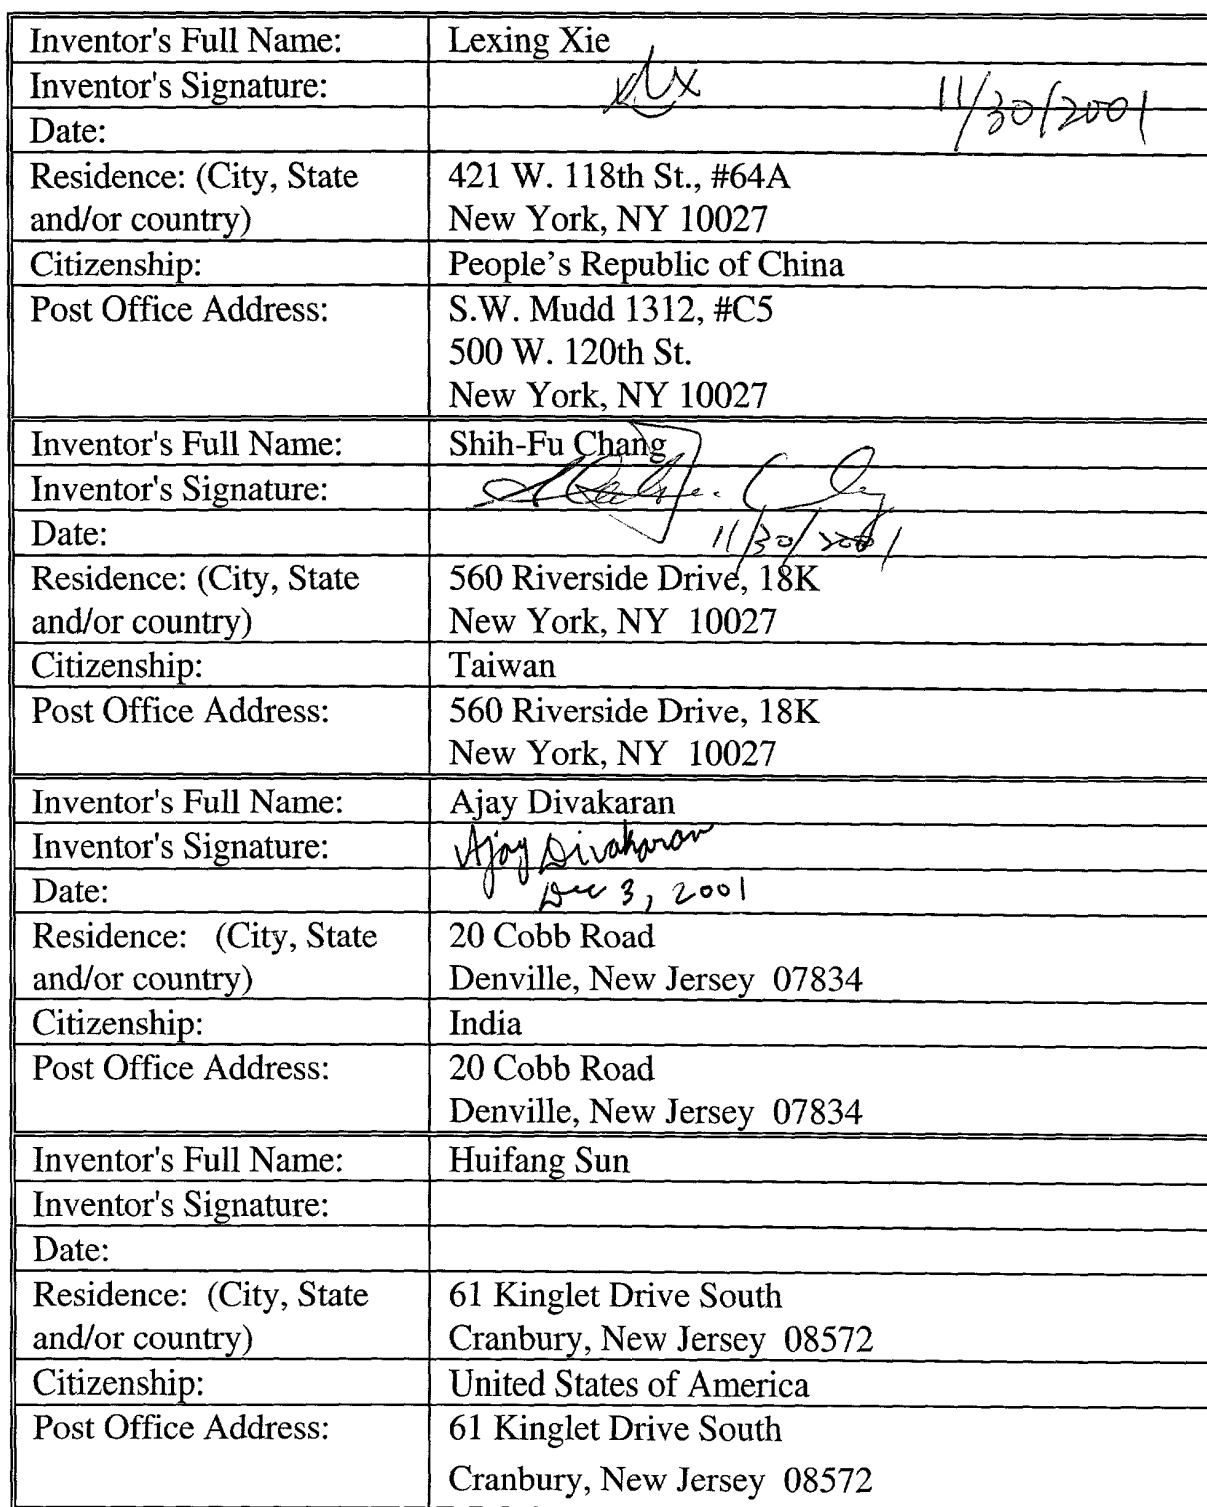 Inventor's Full Name: Lexing Xie
Inventor's Signature:
11/30/2001
Date:
Residence: (City, State 421 W. 118th St., #64A
and/or country) New York, NY 10027
Citizenship: People's Republic of China
Post Office Address: S.W. Mudd 1312, #C5
500 W. 120th St.
New York, NY 10027
Inventor's Full Name: Shih-Fu Chang
Inventor's Signature:
Date: 11/30/2001
Residence: (City, State 560 Riverside Drive, 18K
and/or country) New York, NY 10027
Citizenship: Taiwan
Post Office Address: 560 Riverside Drive, 18K
New York, NY 10027
Inventor's Full Name: Ajay Divakaran
Inventor's Signature: Ajay Divakaran
Date: Dec 3, 2001
Residence: (City, State 20 Cobb Road
and/or country) Denville, New Jersey 07834
Citizenship: India
Post Office Address: 20 Cobb Road
Denville, New Jersey 07834
Inventor's Full Name: Huifang Sun
Inventor's Signature:
Date:
Residence: (City, State 61 Kinglet Drive South
and/or country) Cranbury, New Jersey 08572
Citizenship: United States of America
Post Office Address: 61 Kinglet Drive South
Cranbury, New Jersey 08572